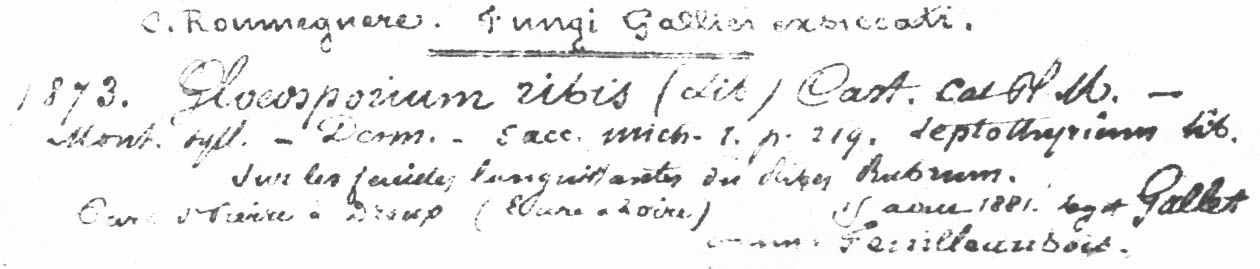 C. Roumeguere. Fungi Gallici exsiccati.
1873. Gloeosporium ribis (Lib) Cast. Cat. Pl. M. —
Mont. syll. — Desm. — Sacc. Mich. I. p. 219. Leptothyrium Lib.
Sur les feuilles languissantes du Ribes Rubrum.
St Pierre à Dreux (Eure & Loire) 15 aout 1881. legit Gallet
Feuilleaubois.